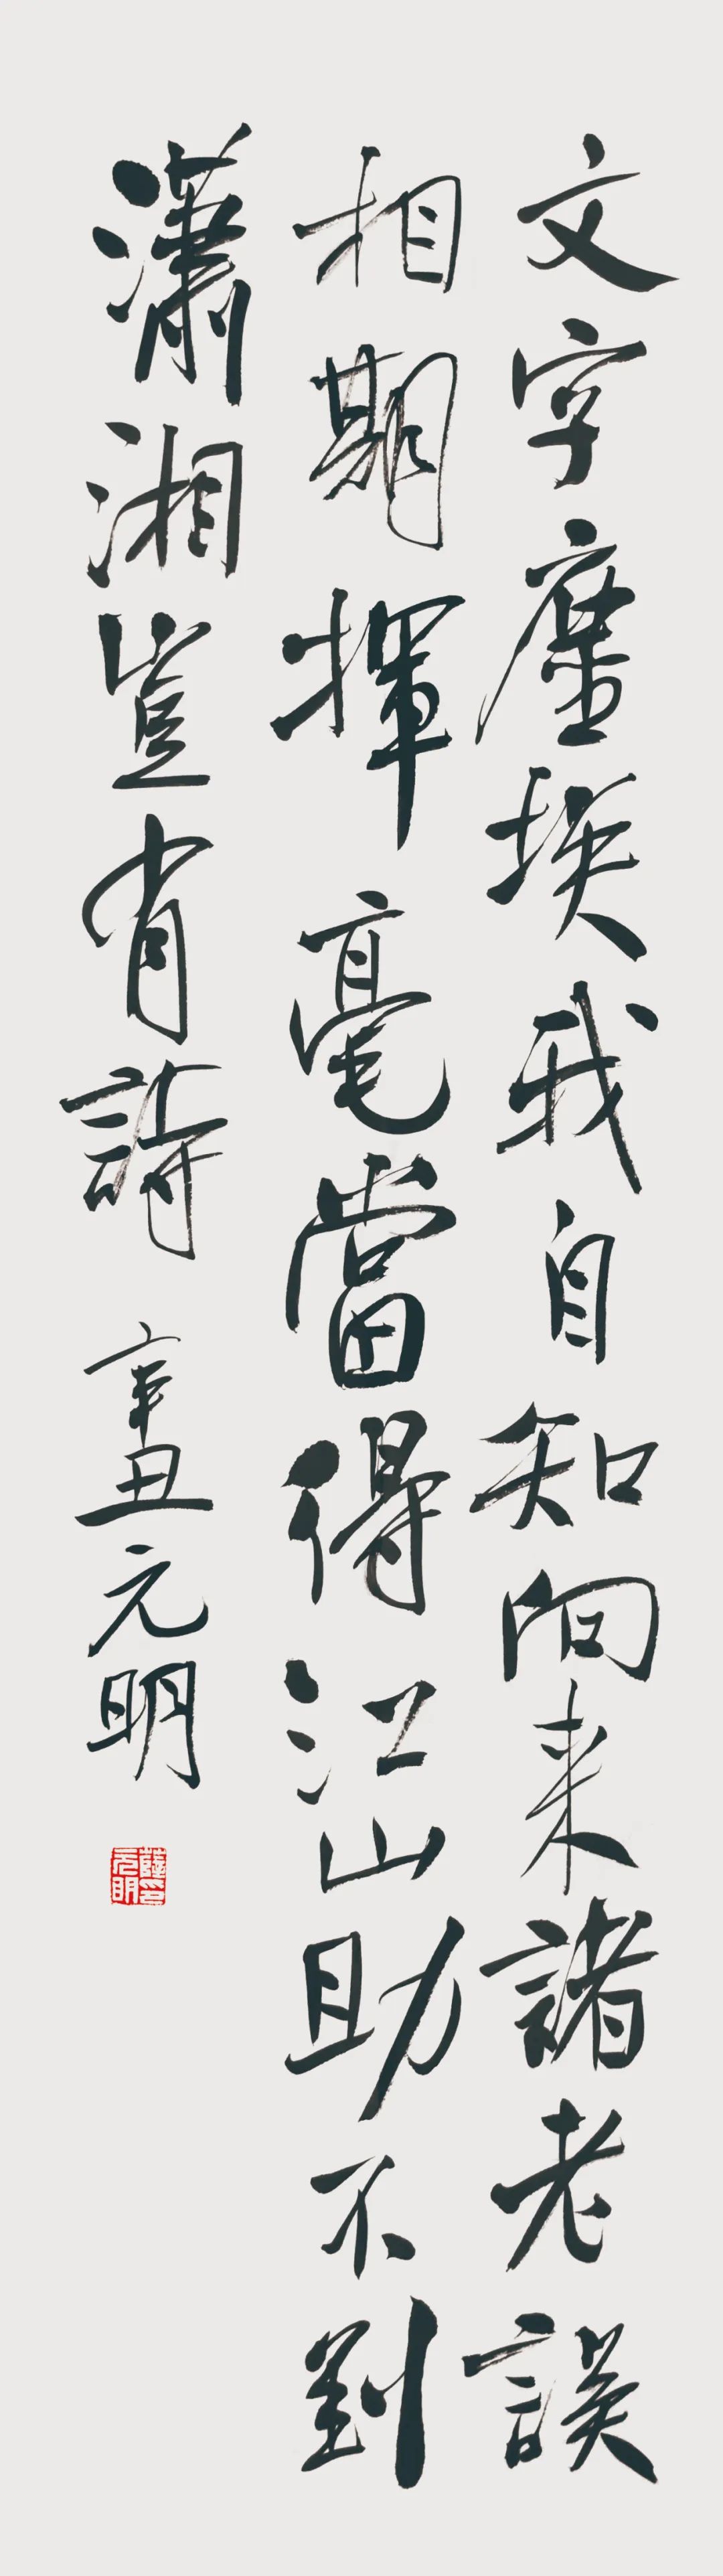 文字塵埃我自知向来諸老誤
相期揮毫當得江山助不到
瀟湘豈有詩 辛丑元明
薛印元明